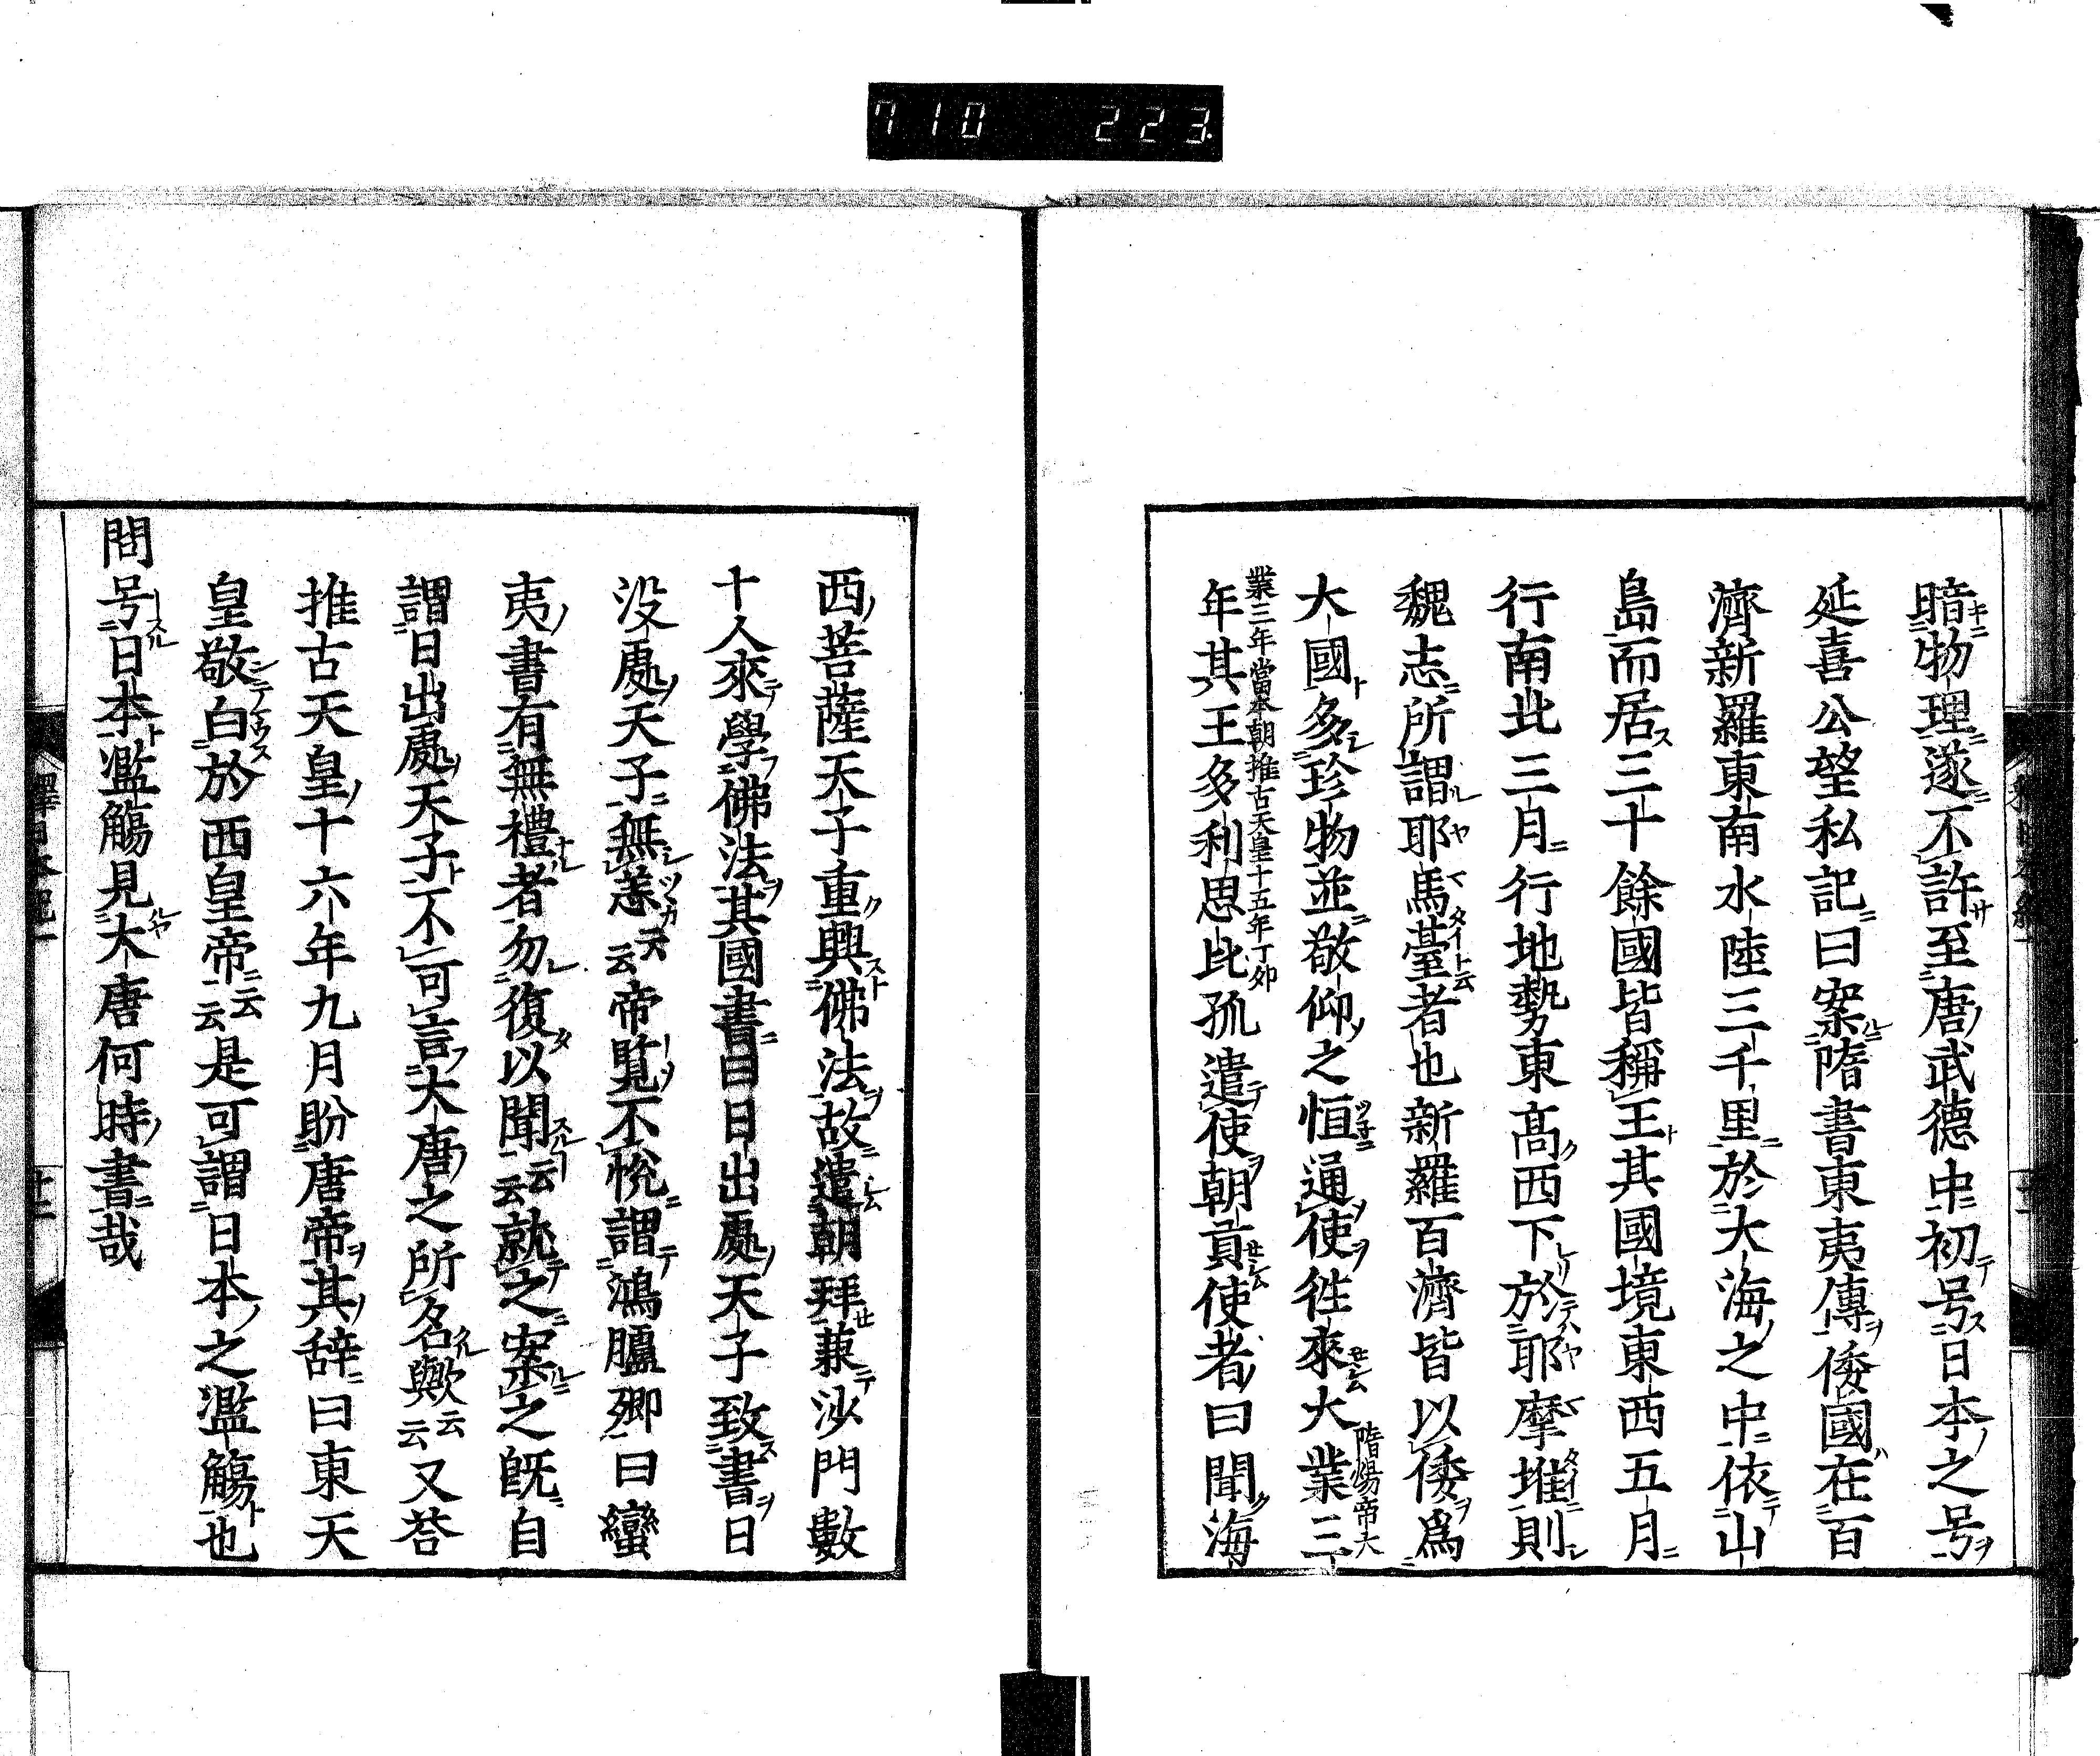 710 223
暗物理遂不許至唐武德中初号日本之号
延喜公望私記曰案隋書東夷傳倭國在百
濟新羅東南水陸三千里於大海之中依山
島而居三十餘國皆稱王其國境東西五月
行南北三月行地勢東髙西下於耶摩堆則
魏志所謂耶馬臺者也新羅百濟皆以倭爲
大國多珍物並敬仰之恒通使徃來大業三
隋煬帝大
業三年當本朝推古天皇十五年丁卯
年其王多利思比孤遣使朝貢使者曰聞海
西菩薩天子重興佛法故遣朝拜兼沙門數
十人來學佛法其國書曰日出處天子致書日
没處天子無恙云云帝覧不悅謂鴻臚卿曰蠻
夷書有無禮者勿復以聞云云就之案之既自
謂日出處天子不可言大唐之所名歟云云又荅
推古天皇十六年九月聘唐帝其辞曰東天
皇敬白於西皇帝云云是可謂日本之濫觴也
問号日本濫觴見大唐何時書哉